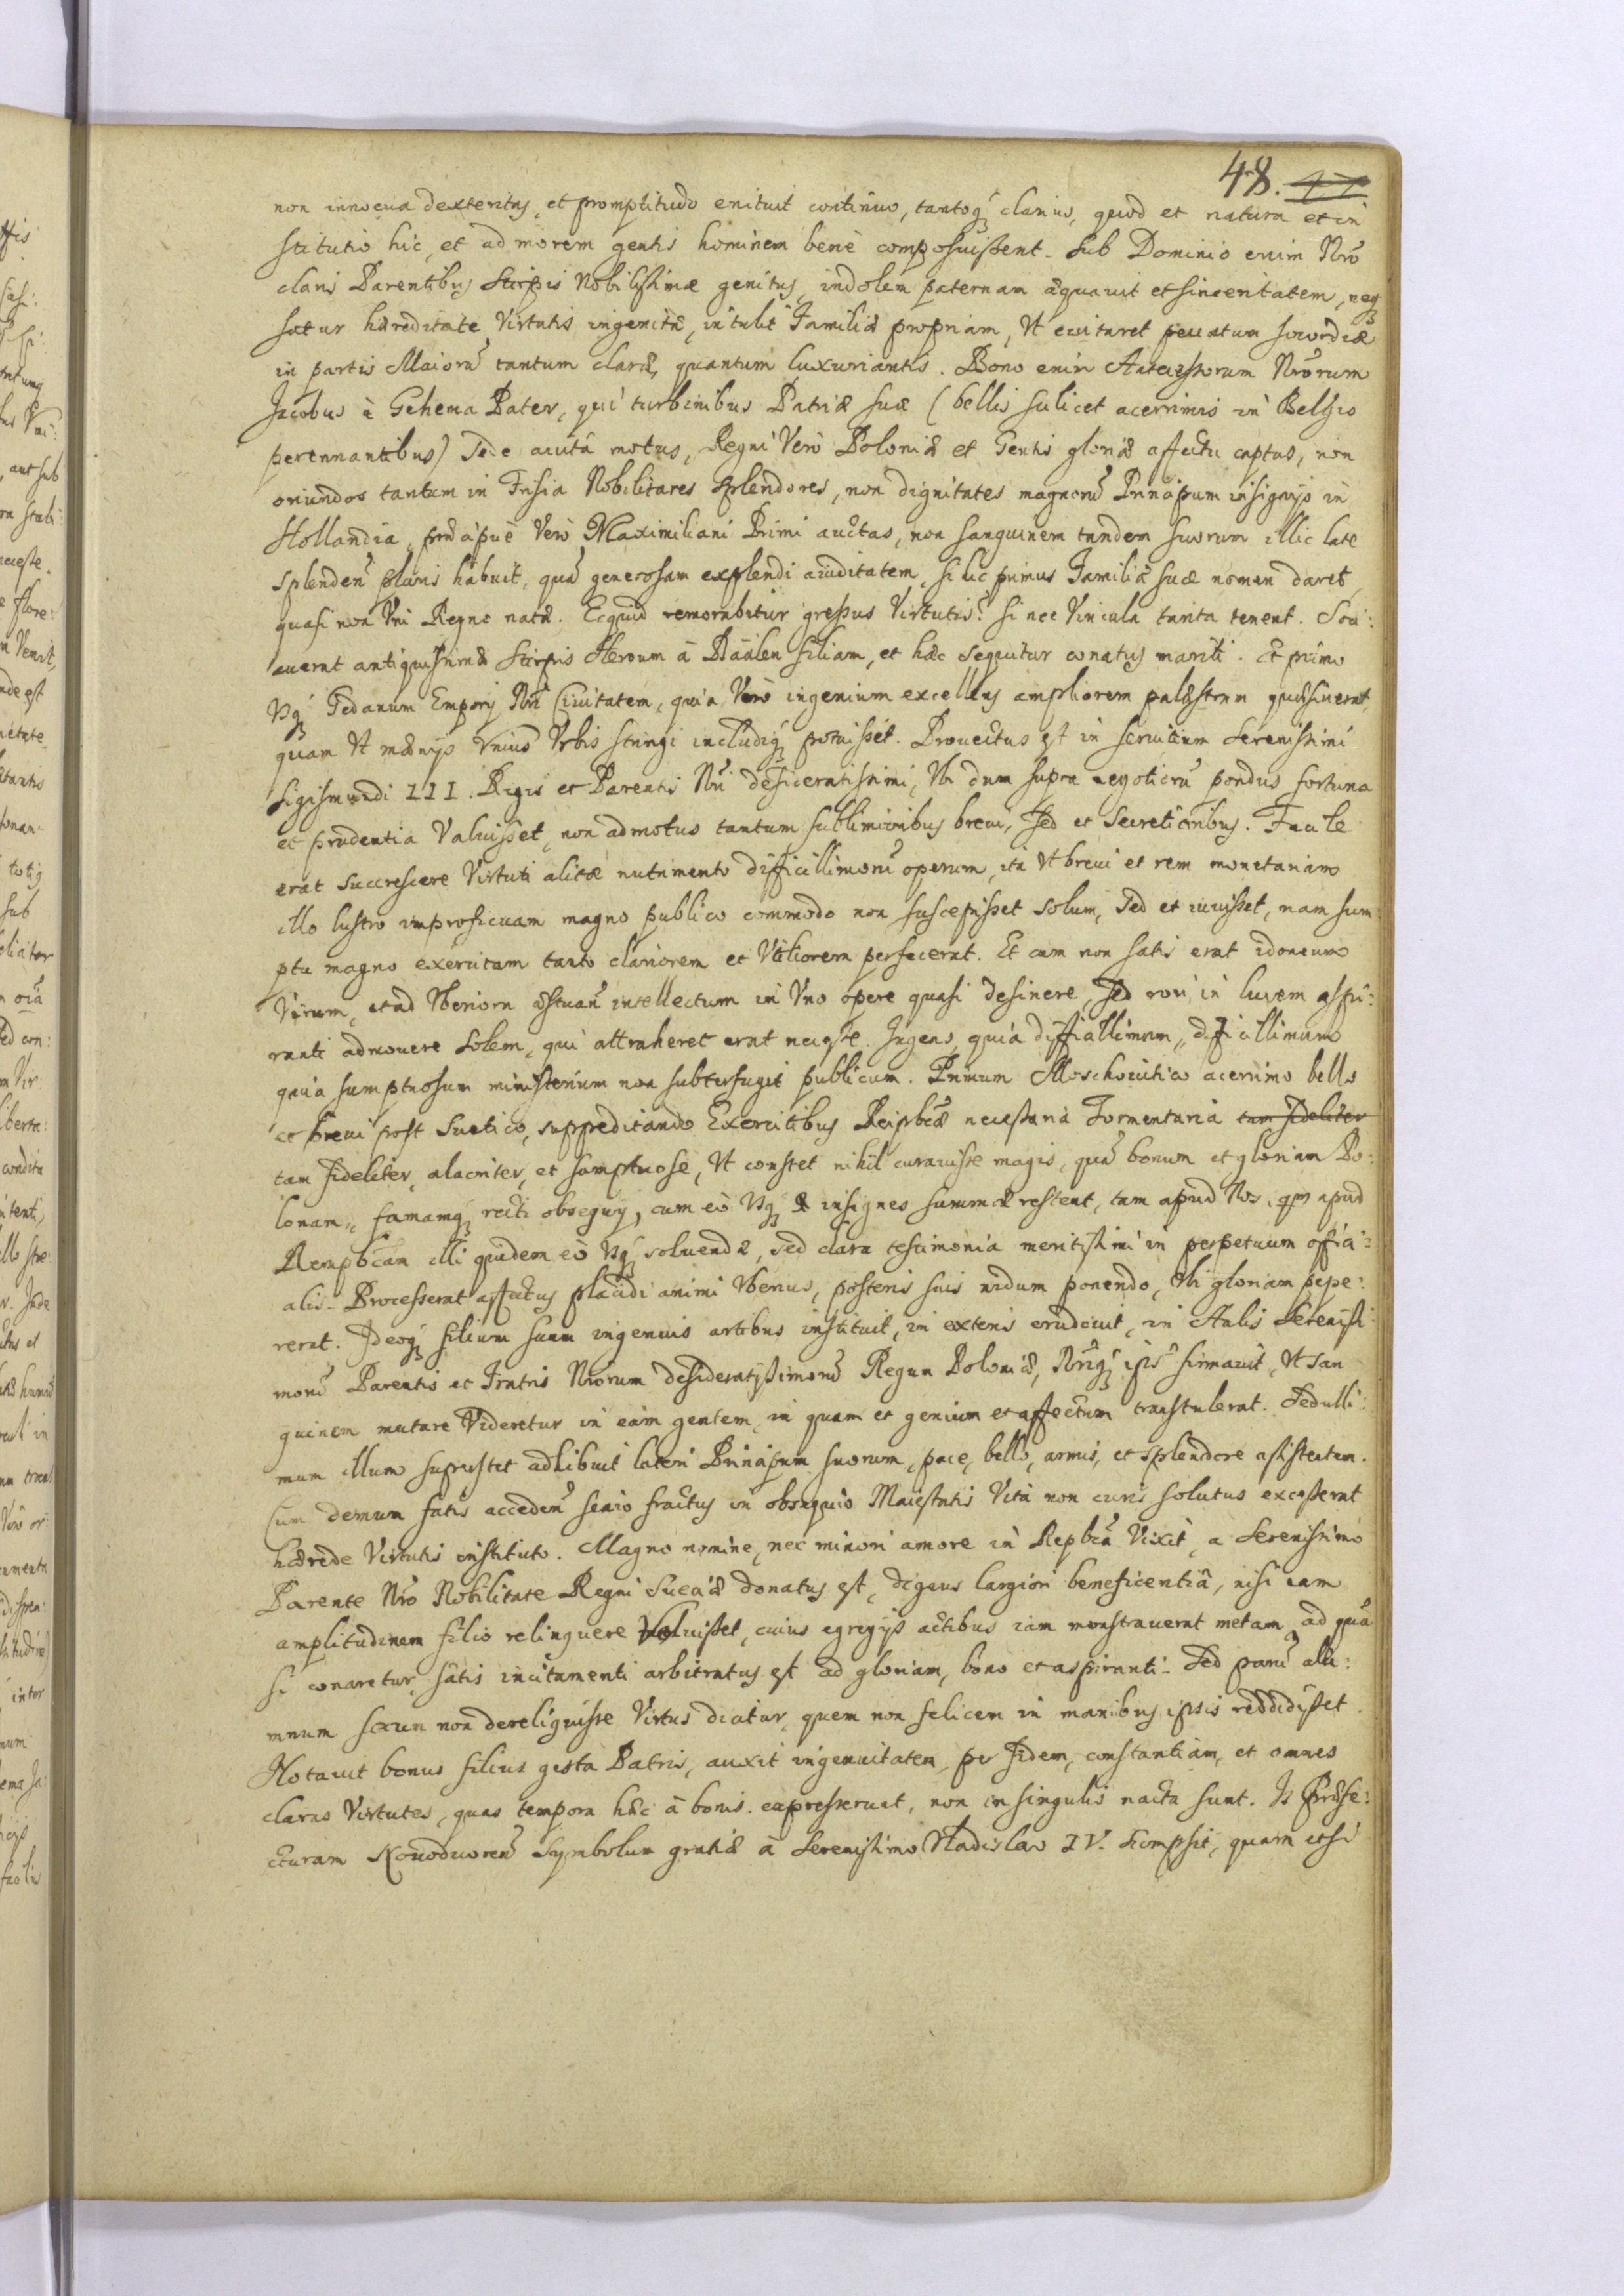 48. 47
non innocua dexteritas, et promptitudo enituit continuo, tantoq; clarius, quod et natura et in
stitutio hic, et ad morem gentis hominem benè composuißent. Sub Dominio enim Nro
claris Parentibus Stirpis Nobilißimæ genitus, indolem paternam æquavit et sinceritatem, neq;
satur hæreditate Virtutis ingenitæ, intulit Familiæ propriam, Vt evitaret peccatum socordiæ
in partis Maiorũ tantum claræ, quantum luxuriantis. Bono enim Antecessorum Nrorum
Jacobus à Gehema Pater, qui turbinibus Patriæ suæ (bellis scilicet acerrimis in Belgio
perennantibus) Sede avitâ motus, Regni Verò Poloniæ et Gentis gloriæ affectu captus, non
oriundos tantum in Frisia Nobilitares Splendores, non dignitates magnorũ Principum insignijs in
Hollandia, præcipuè Verò Maximiliani Primi auctas, non sanguinem tandem suorum illic late
splendenũ pluris habuit, quã generosam explendi aviditatem, si hic primus Familiæ suæ nomen daret
quasi non Vni Regno natæ. Ecquid remorabitur greßus Virtutis? si nec Vincula tanta tenent. Soci:
averat antiquißimæ Stirpis Heroum à Däälen filiam, et hæc sequitur conatus mariti. Et primo
Vsq; Gedanum Emporij Nri Civitatem, quia Verò ingenium excellens ampliorem palæstram quæsiverat,
quam Vt mænijs Vnius Vrbis stringi includiq; potuisset. Provectus est in servitium Serenißimi
Sigismundi III. Regis et Parentis Nri desideratissimi, Vbi dum supra negotiorũ pondus fortuna
et prudentia Valuisset, non admotus tantum sublimioribus brevi, Sed et Secretioribus. Facile
erat succrescere Virtuti alitæ nutrimento difficillimorũ operum, ita Vt brevi et rem monetariam
illo lustro improficuam magno publico commodo non suscepißet solum, Sed et iuvißet, nam sum
ptu magno exercitam tanto clariorem et Vtiliorem perfecerat. Et cum non satis erat idoneum
Virum, et ad Vberiora æstuanẽ intellectum in Vno opere quasi desinere, Sed rori in lucem aspi:
ranti admovere Solem, qui attraheret erat neceße. Ingens, quia difficillimum, difficillimum
quia sumptuosum ministerium non subterfugit publicum. Primum Moschovitico acerrimo bello
et brevi post Suetico, suppeditando Exercitibus Reipbcæ necessaria Tormentaria tam fideliter
tam fideliter, alacriter, et sumptuose, Vt constet nihil curavisse magis, quã bonum et gloriam Po:
lonam, famamq; recti obsequij, cum eò Vsq; & insignes summæ restent, tam apud Nos, qm apud
Rempbcam illi quidem eò Vsq; solvendæ, sed clara testimonia meritißimi in perpetuum offici:
alis. Processerat affectus placidi animi Vberius, posteris suis nidum ponendo, Vbi gloriam pepe:
rerat. Ideoq; filium suum ingenuis artibus instituit, in exteris erudivit, in Aulis Serenißi
morũ Parentis et Fratris Nrorum desideratißimorũ Regum Poloniæ, Nraq; ipsã firmavit, Vt san
guinem mutare Videretur in eam gentem, in quam et genium et affectum transtulerat. Sedulli:
mum illum superstes adhibuit lateri Principum suorum, pace, bello, armis, et splendore aßistentem.
Cum demum fatis accedenũ senio fractus in obsequio Maiestatis Vitâ non curis solutus exceßerat
hærede Virtutis instituto. Magno nomine, nec minori amore in Repbca Vixit, a Serenissimo
Parente Nro Nobilitate Regni Sueciæ donatus est, dignus largiori beneficentiâ, nisi eam
amplitudinem filio relinquere Voluißet, cuius egregijs actibus iam monstraverat metam, ad quã
si conaretur, satis incitamenti arbitratus est ad gloriam, bono et aspiranti. Sed parũ alu:
mnum suum non dereliquisse Virtus dicatur, quem non felicem in manibus ipsis reddidißet.
Notavit bonus filius gesta Patris, auxit ingenuitatem, per fidem, constantiam, et omnes
claras Virtutes, quas tempora hæc à bonis expresserunt, non in singulis nacta sunt. Is Præfe:
cturam Nowodworensẽ Symbolum gratiæ à Serenißimo Vladislao IV. Sumpsit, quam etsi